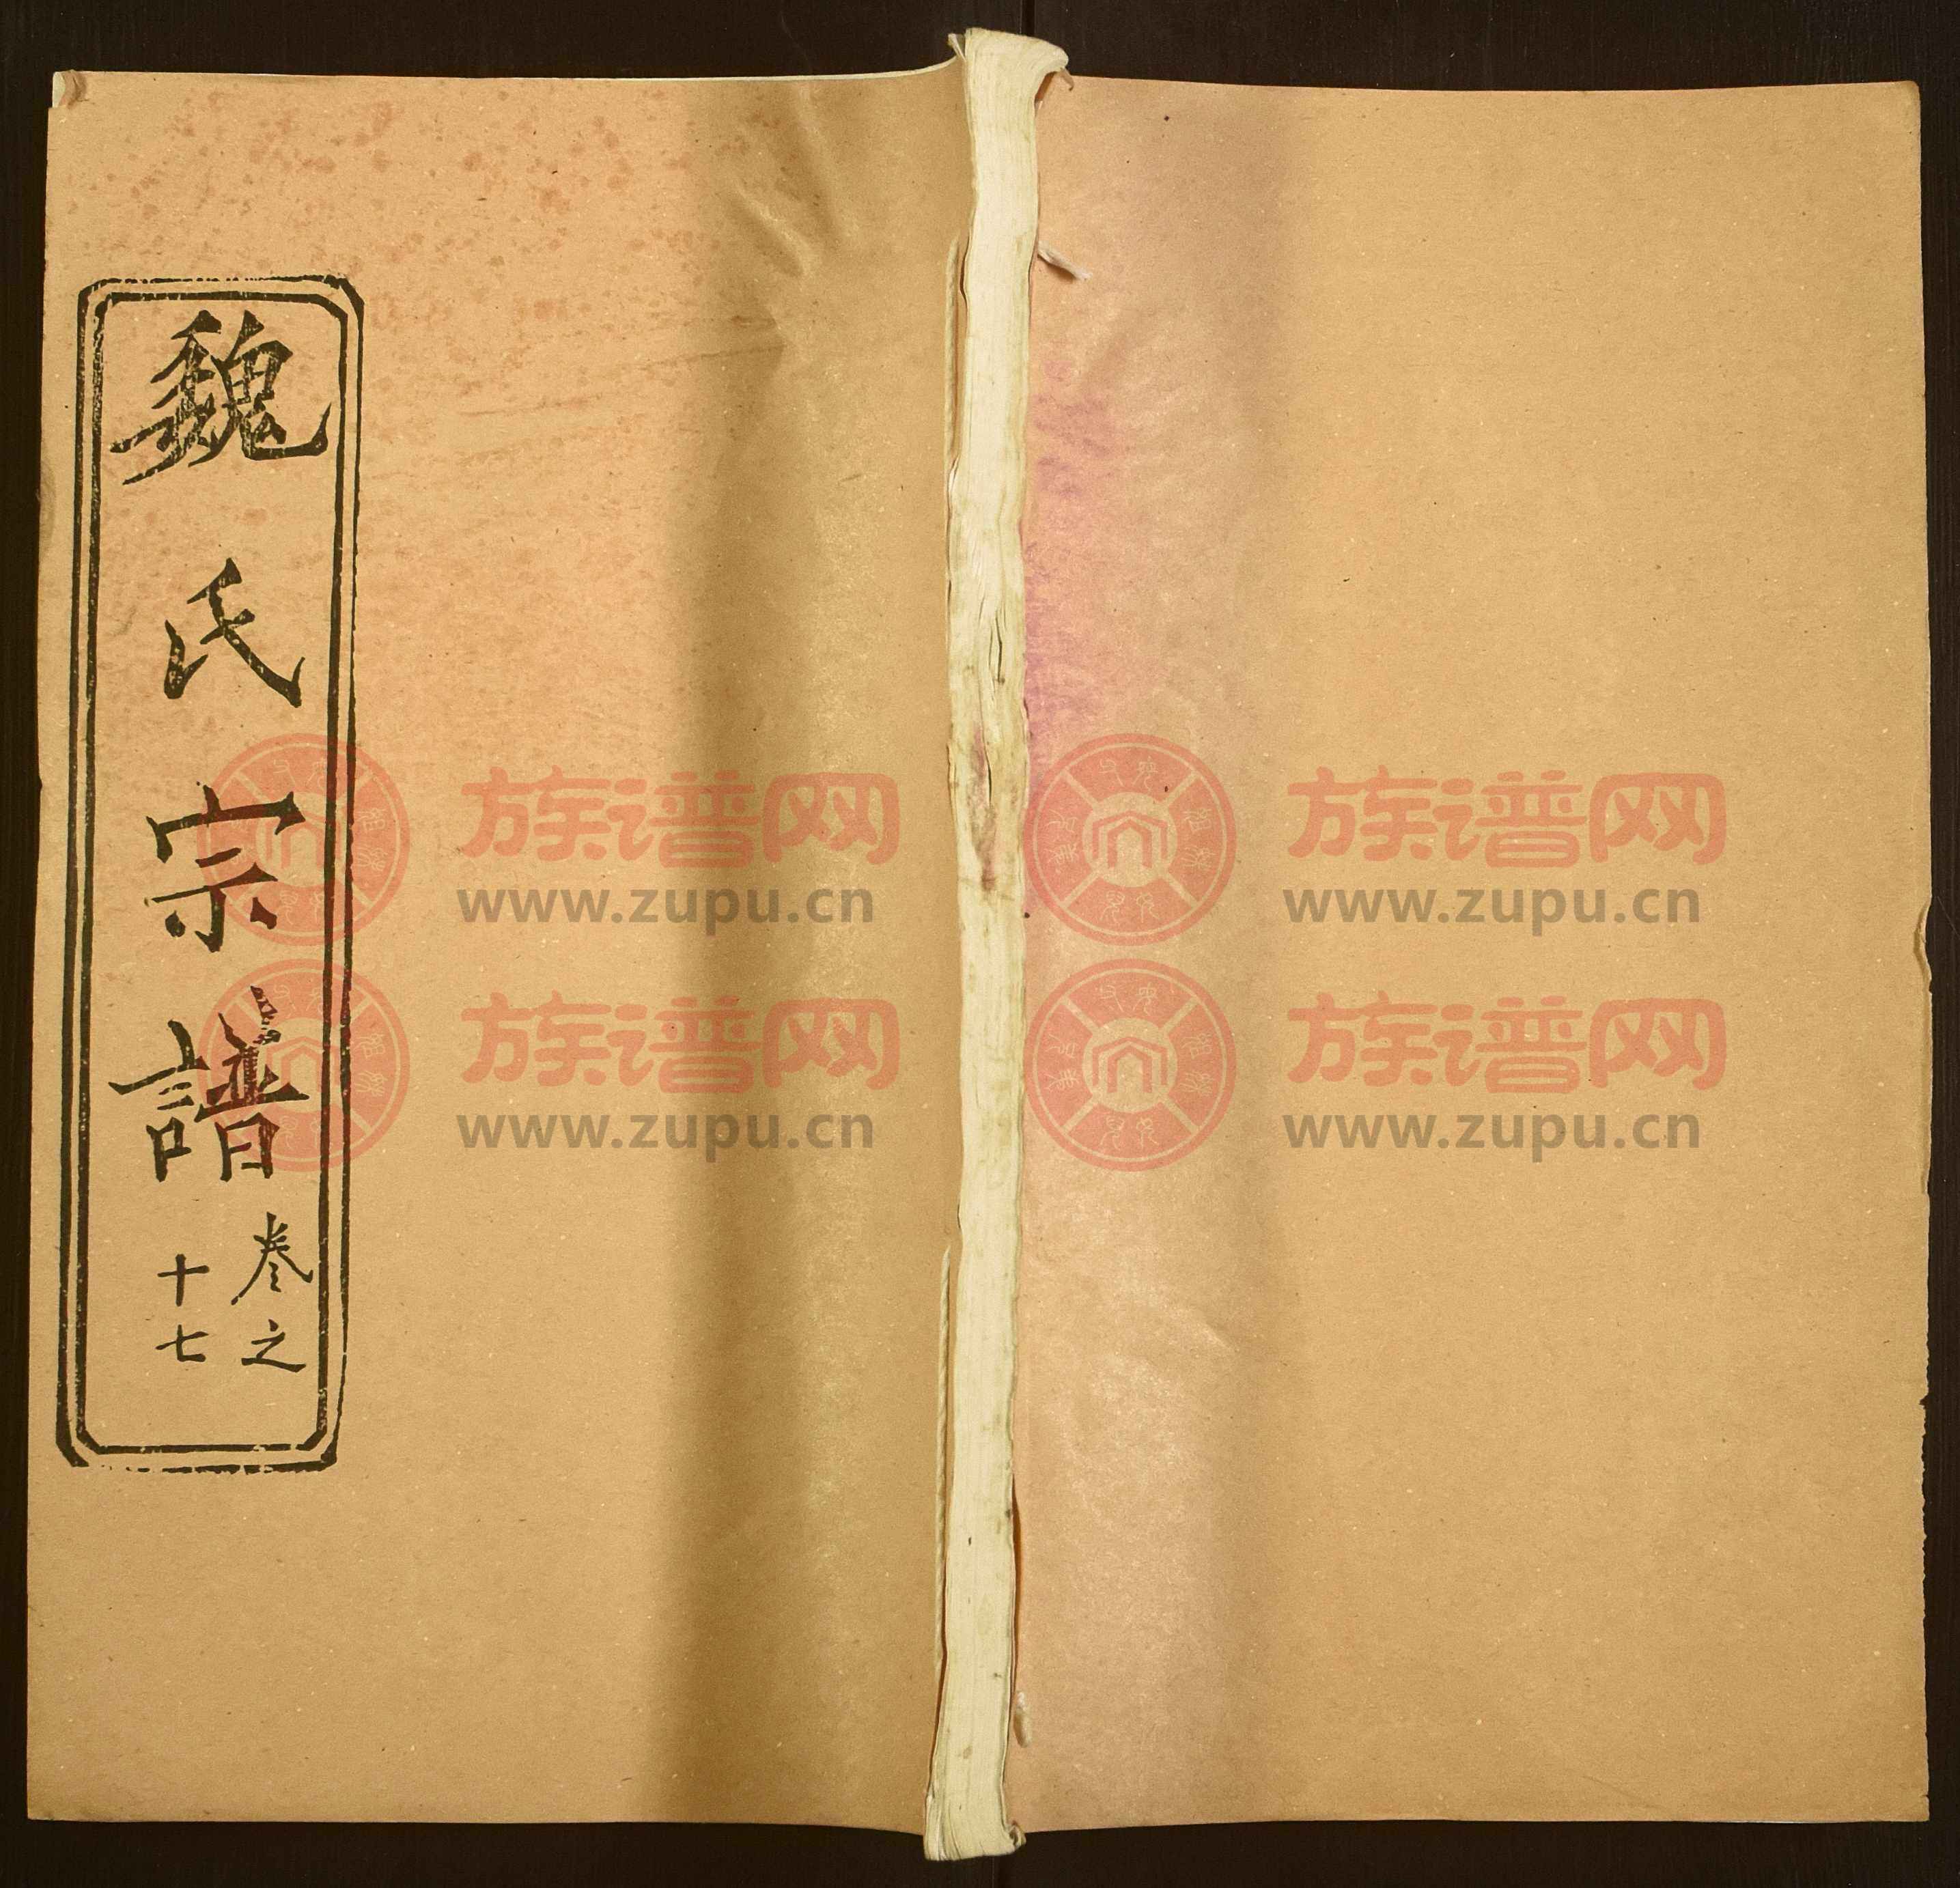 魏氏宗譜
卷之
十七
族谱网
www.zupu.cn
族谱网
www.zupu.cn
族谱网
www.zupu.cn
族谱网
www.zupu.cn